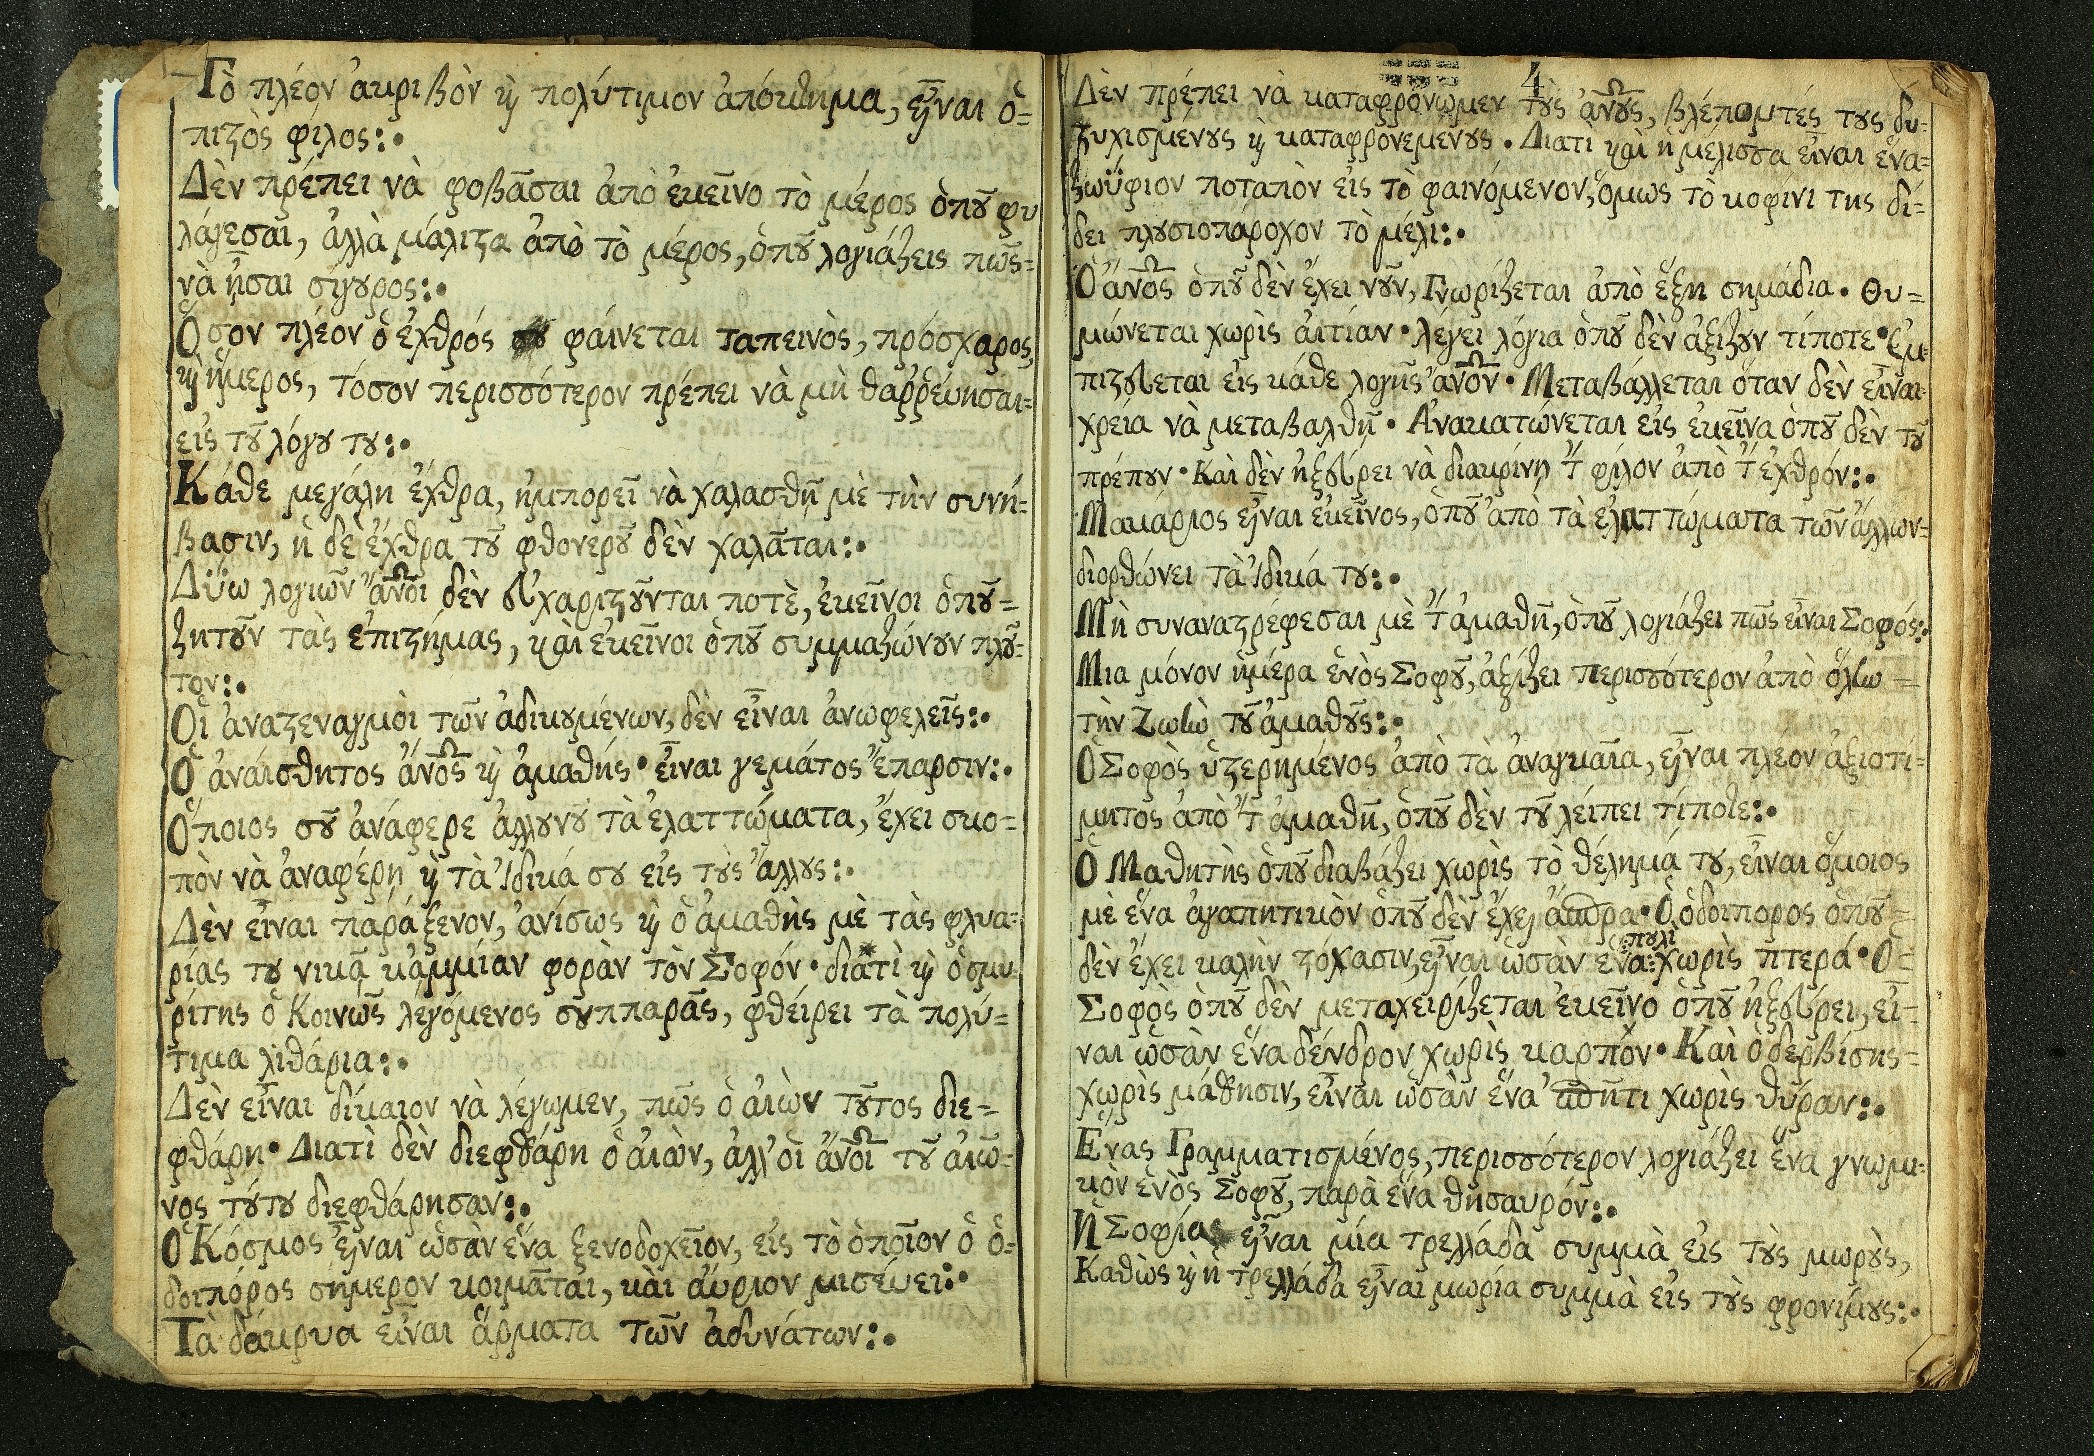 Τὸ πλέον ἀκριβὸν κỳ πολύτιμον ἀπόκτημα, εἶναι ὁ=
πιϛὸς φίλος:•
Δὲν πρέπει νὰ φοβᾶσαι ἀπὸ ἐκεῖνο τὸ μέρος ὁπȣ͂ φυ
λάγεσαι, ἀλλὰ μάλιϛα ἀπὸ τὸ μέρος, ὁπȣ͂ λογιάζεις πῶς=
νὰ ἦσαι σίγȣρος:•
Ὅσον πλέον ὁ ἐχθρός σȣ φαίνεται ταπεινὸς, πρόσχαρος,
κỳ ἥμερος, τόσον περισσότερον πρέπει νὰ μὴ θαῤῥεύησαι=
εἰς τȣ͂ λόγȣ τȣ:•
Κάθε μεγάλη ἔχθρα, ἠμπορεῖ νὰ χαλασθῇ μὲ τὴν συνή=
βασιν, ἡ δὲ ἔχθρα τȣ͂ φθονερȣ͂ δὲν χαλᾶται:•
Δύω λογιῶν ἄνοι δὲν εὐχαριϛȣ͂νται ποτὲ, ἐκεῖνοι ὁπȣ͂=
ζητȣ͂ν τὰς ἐπιϛήμας, καὶ ἐκεῖνοι ὁπȣ͂ συμμαζώνȣν πλȣ͂=
τον:•
Οἱ ἀναϛεναγμοὶ τῶν ἀδικȣμένων, δὲν εἶναι ἀνωφελεῖς:•
Ὁ ἀναίσθητος ἄνος κỳ ἀμαθής• εἶναι γεμάτος ἔπαρσιν:•
Ὅποιος σȣ͂ ἀνάφερε ἀλλȣνȣ͂ τὰ ἐλαττώματα, ἔχει σκο=
πὸν νὰ ἀναφέρῃ κỳ τὰ ἰδικά σȣ εἰς τȣ̀ς ἄλλȣς:•
Δὲν εἶναι παράξενον, ἀνίσως κỳ ὁ ἀμαθὴς μὲ τὰς φλυα=
ρίας τȣ νικᾷ καμμίαν φορὰν τὸν Σοφόν• διατὶ κỳ ὁ σμυ=
ρίτης ὁ Κοινῶς λεγόμενος σȣνπαρᾶς, φθείρει τὰ πολύ=
τιμα λιθάρια:•
Δὲν εἶναι δίκαιον νὰ λέγωμεν, πῶς ὁ αἰὼν τȣ͂τος διε=
φθάρη• Διατὶ δὲν διεφθάρη ὁ αἰὼν, ἀλλ' οἱ ἄνοι τȣ͂ αἰῶ=
νος τȣ́τȣ διεφθάρησαν:•
Ὁ Κόσμος εἶναι ὡσὰν ἕνα ξενοδοχεῖον, εἰς τὸ ὁποῖον ὁ ὁ=
δοιπόρος σήμερον κοιμᾶται, καὶ αὔριον μισεύει:•
Τὰ δάκρυα εἶναι ἅρματα τῶν ἀδυνάτων:•
4
Δὲν πρέπει νὰ καταφρονῶμεν τȣ̀ς ἄνȣς, βλέποντές τȣς δυ=
ϛυχισμένȣς κỳ καταφρονεμένȣς• Διατὶ καὶ ἡ μέλισσα εἶναι ἕνα=
ζωΰφιον ποταπὸν εἰς τὸ φαινόμενον, ὅμως τὸ κοφίνι της δί=
δει πλȣσιοπάροχον τὸ μέλι:•
Ὁ ἄνος ὁπȣ͂ δὲν ἔχει νȣ͂ν, Γνωρίζεται ἀπὸ ἕξη σημάδια• Θυ=
μώνεται χωρὶς αἰτίαν• λέγει λόγια ὁπȣ͂ δὲν ἀξίζȣν τίποτε• Ἐμ=
πιϛεύεται εἰς κάθε λογῆς ἄνον• Μεταβάλλεται ὅταν δὲν εἶναι=
χρεία νὰ μεταβαλθῇ• Ἀνακατώνεται εἰς ἐκεῖνα ὁπȣ͂ δὲν τȣ͂
πρέπȣν• Καὶ δὲν ἠξεύρει νὰ διακρίνῃ τ̀ φίλον ἀπὸ τ̀ ἐχθρόν:•
Μακάριος εἶναι ἐκεῖνος, ὁπȣ͂ ἀπὸ τὰ ἐλαττώματα τῶν ἄλλων=
διορθώνει τὰ ἰδικά τȣ:•
Μὴ συναναϛρέφεσαι μὲ τ̀ ἀμαθῆ, ὁπȣ͂ λογιάζει πῶς εἶναι Σοφός:•
Μία μόνον ἡμέρα ἑνὸς Σοφȣ͂, ἀξίζει περισσότερον ἀπὸ ὅλην=
τὴν ζωὴν τȣ͂ ἀμαθȣ͂ς:•
Ὁ Σοφὸς ὑϛερημένος ἀπὸ τὰ ἀναγκαῖα, εἶναι πλέον ἀξιοτί=
μητος ἀπὸ τ̀ ἀμαθῆ, ὁπȣ͂ δὲν τȣ͂ λείπει τίποτε:•
Ὁ Μαθητὴς ὁπȣ͂ διαβάζει χωρὶς τὸ θέλημά τȣ, εἶναι ὅμοιος
μὲ ἕνα ἀγαπητικὸν ὁπȣ͂ δὲν ἔχει ἄσπρα• Ὁ ὁδοιπόρος ὁπȣ͂=
δὲν ἔχει καλὴν ϛόχασιν, εἶναι ὡσὰν ἕνα πȣλὶ χωρὶς πτερά• Ὁ=
Σοφὸς ὁπȣ͂ δὲν μεταχειρίζεται ἐκεῖνο ὁπȣ͂ ἠξεύρει, εἶ=
ναι ὡσὰν ἕνα δένδρον χωρὶς καρπὸν• Καὶ ὁ δερβίσης=
χωρὶς μάθησιν, εἶναι ὡσὰν ἕνα ὀσπήτι χωρὶς θύραν:•
Ἕνας Γραμματισμένος, περισσότερον λογιάζει ἕνα γνωμι=
κὸν ἑνὸς Σοφȣ͂, παρὰ ἕνα θησαυρόν:•
Ἡ Σοφία εἶναι μία τρελλάδα συμμὰ εἰς τȣ̀ς μωρȣ̀ς,
Καθὼς κỳ ἡ τρελλάδα εἶναι μωρία συμμὰ εἰς τȣ̀ς φρονίμȣς:•